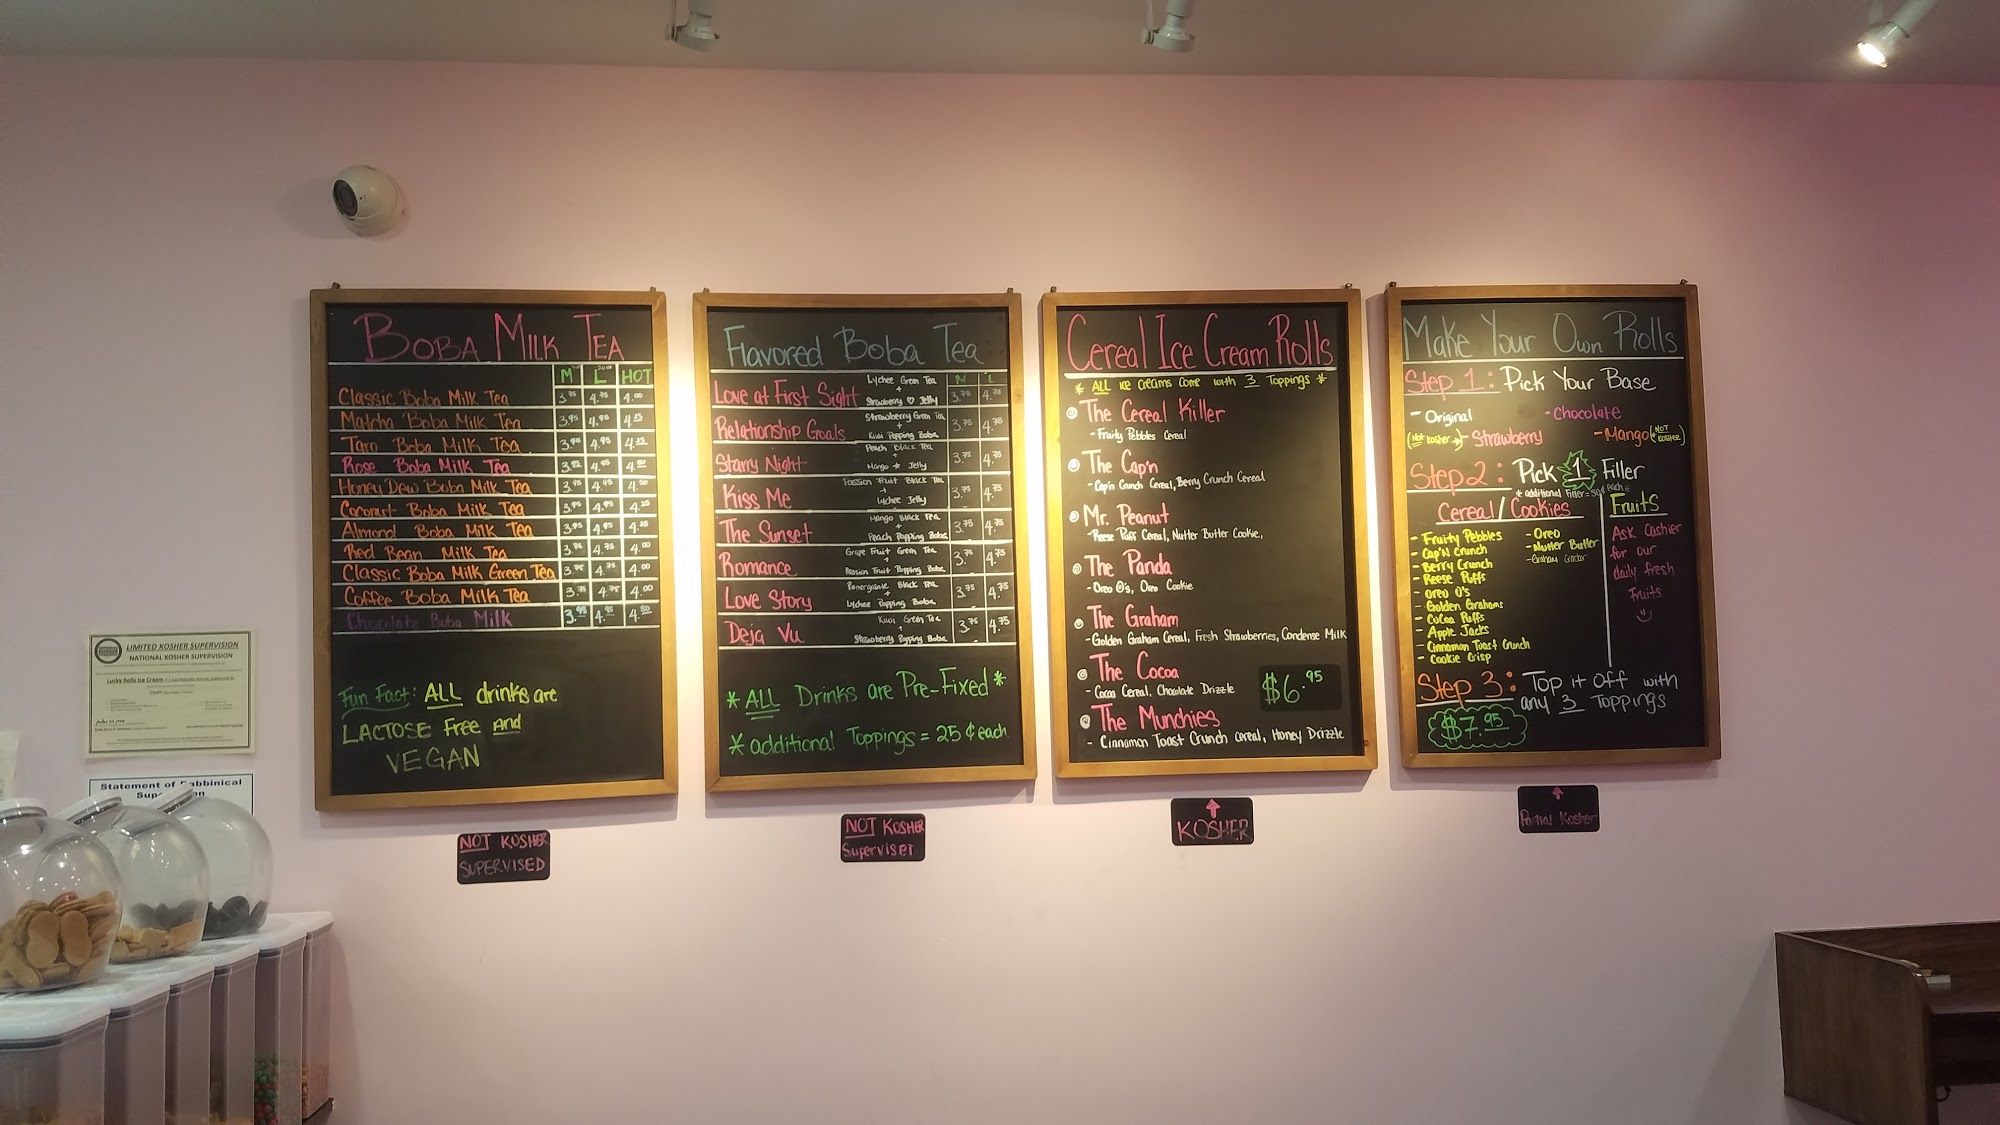 LIMITED KOSHER SUPERVISION
NATIONAL KOSHER SUPERVISION
Lucky Rolls Ice Cream
Statement of Rabbinical
BOBA MILK TEA
M L HOT
Classic Boba Milk Tea 3.75 4.75 4.00
Matcha Boba Milk Tea 3.95 4.95 4.25
Taro Boba Milk Tea 3.95 4.95 4.25
Rose Boba Milk Tea 4.95
Honey Dew Boba Milk Tea 3.95 4.95
Coconut Boba Milk Tea 3.95 4.95 4.25
Almond Boba Milk Tea 3.95 4.95 4.25
Red Bean Milk Tea 3.75 4.75 4.00
Classic Boba Milk Green Tea 3.75 4.75 4.00
Coffee Boba Milk Tea 3.75 4.75 4.00
Chocolate Boba Milk 3.95 4.95
Fun Fact: ALL drinks are
LACTOSE Free AND
VEGAN
NOT KOSHER
SUPERVISED
Flavored Boba Tea
M L
Love at First Sight Lychee Green Tea + Strawberry ♡ Jelly 3.75 4.75
Relationship Goals Strawberry Green Tea + Kiwi Popping Boba 3.75 4.75
Starry Night Peach Black Tea + Mango ★ Jelly 3.75 4.75
Kiss Me Passion Fruit Black Tea + Lychee Jelly 3.75 4.75
The Sunset Mango Black Tea + Peach Popping Boba 3.75 4.75
Romance Grape Fruit Green Tea + Passion Fruit Popping Boba 3.75 4.75
Love Story Black Tea + Lychee Popping Boba 3.75 4.75
Deja Vu Kiwi Green Tea + Strawberry Popping Boba 3.75 4.75
* ALL Drinks are Pre-Fixed *
* additional Toppings = 25¢ each
NOT KOSHER
Superviset
Cereal Ice Cream Rolls
* ALL ice creams come with 3 Toppings *
The Cereal Killer
- Fruity Pebbles Cereal
The Cap'n
- Cap'n Crunch Cereal, Berry Crunch Cereal
Mr. Peanut
- Reese Puff Cereal, Nutter Butter Cookie,
The Panda
- Oreo O's, Oreo Cookie
The Graham
- Golden Graham Cereal, Fresh Strawberries, Condense Milk
The Cocoa
- Cocoa Cereal, Chocolate Drizzle
$6.95
The Munchies
- Cinnamon Toast Crunch cereal, Honey Drizzle
↑
KOSHER
Make Your Own Rolls
Step 1: Pick Your Base
- Original - Chocolate
(Not Kosher →) - Strawberry - Mango (NOT KOSHER)
Step 2: Pick 1 Filler
* additional Filler = 50¢ each *
Cereal/Cookies
- Fruity Pebbles
- Cap'N Crunch
- Berry Crunch
- Reese Puffs
- Oreo O's
- Golden Grahams
- CoCoa Puffs
- Apple Jacks
- Cinnamon Toast Crunch
- Cookie Crisp
- Oreo
- Nutter Butter
- Graham Cracker
Fruits
Ask Cashier
for our
daily fresh
Fruits
Step 3: Top it off with
any 3 Toppings
$7.95
↑
Partial Kosher